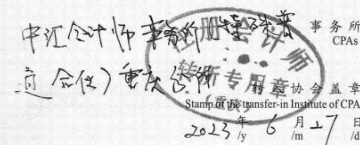 中汇会计师事务所(特殊普 事务所
CPAs
通合伙)重庆分所
注册会计师
转所专用章
转入协会盖章
Stamp of the transfer-in Institute of CPA
2023 年/y 6 月/m 27 日/d